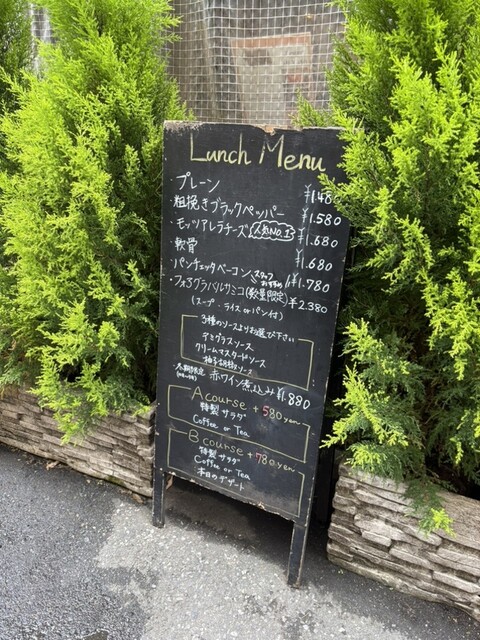 Lunch Menu
・プレーン ¥1.480
・粗挽きブラックペッパー ¥1.580
・モッツアレラチーズ 人気NO.1 ¥1.680
・軟骨 ¥1.680
・パンチェッタベーコン スタッフおすすめ!! ¥1.780
・フォアグラバルサミコ(数量限定) ¥2.380
(スープ・ライス or パン付)
3種のソースよりお選び下さい
デミグラスソース
クリームマスタードソース
柚子胡椒ソース
赤ワイン煮込み ¥1.880
A course + 580yen
特製サラダ
Coffee or Tea
B course + 780yen
特製サラダ
Coffee or Tea
本日のデザート